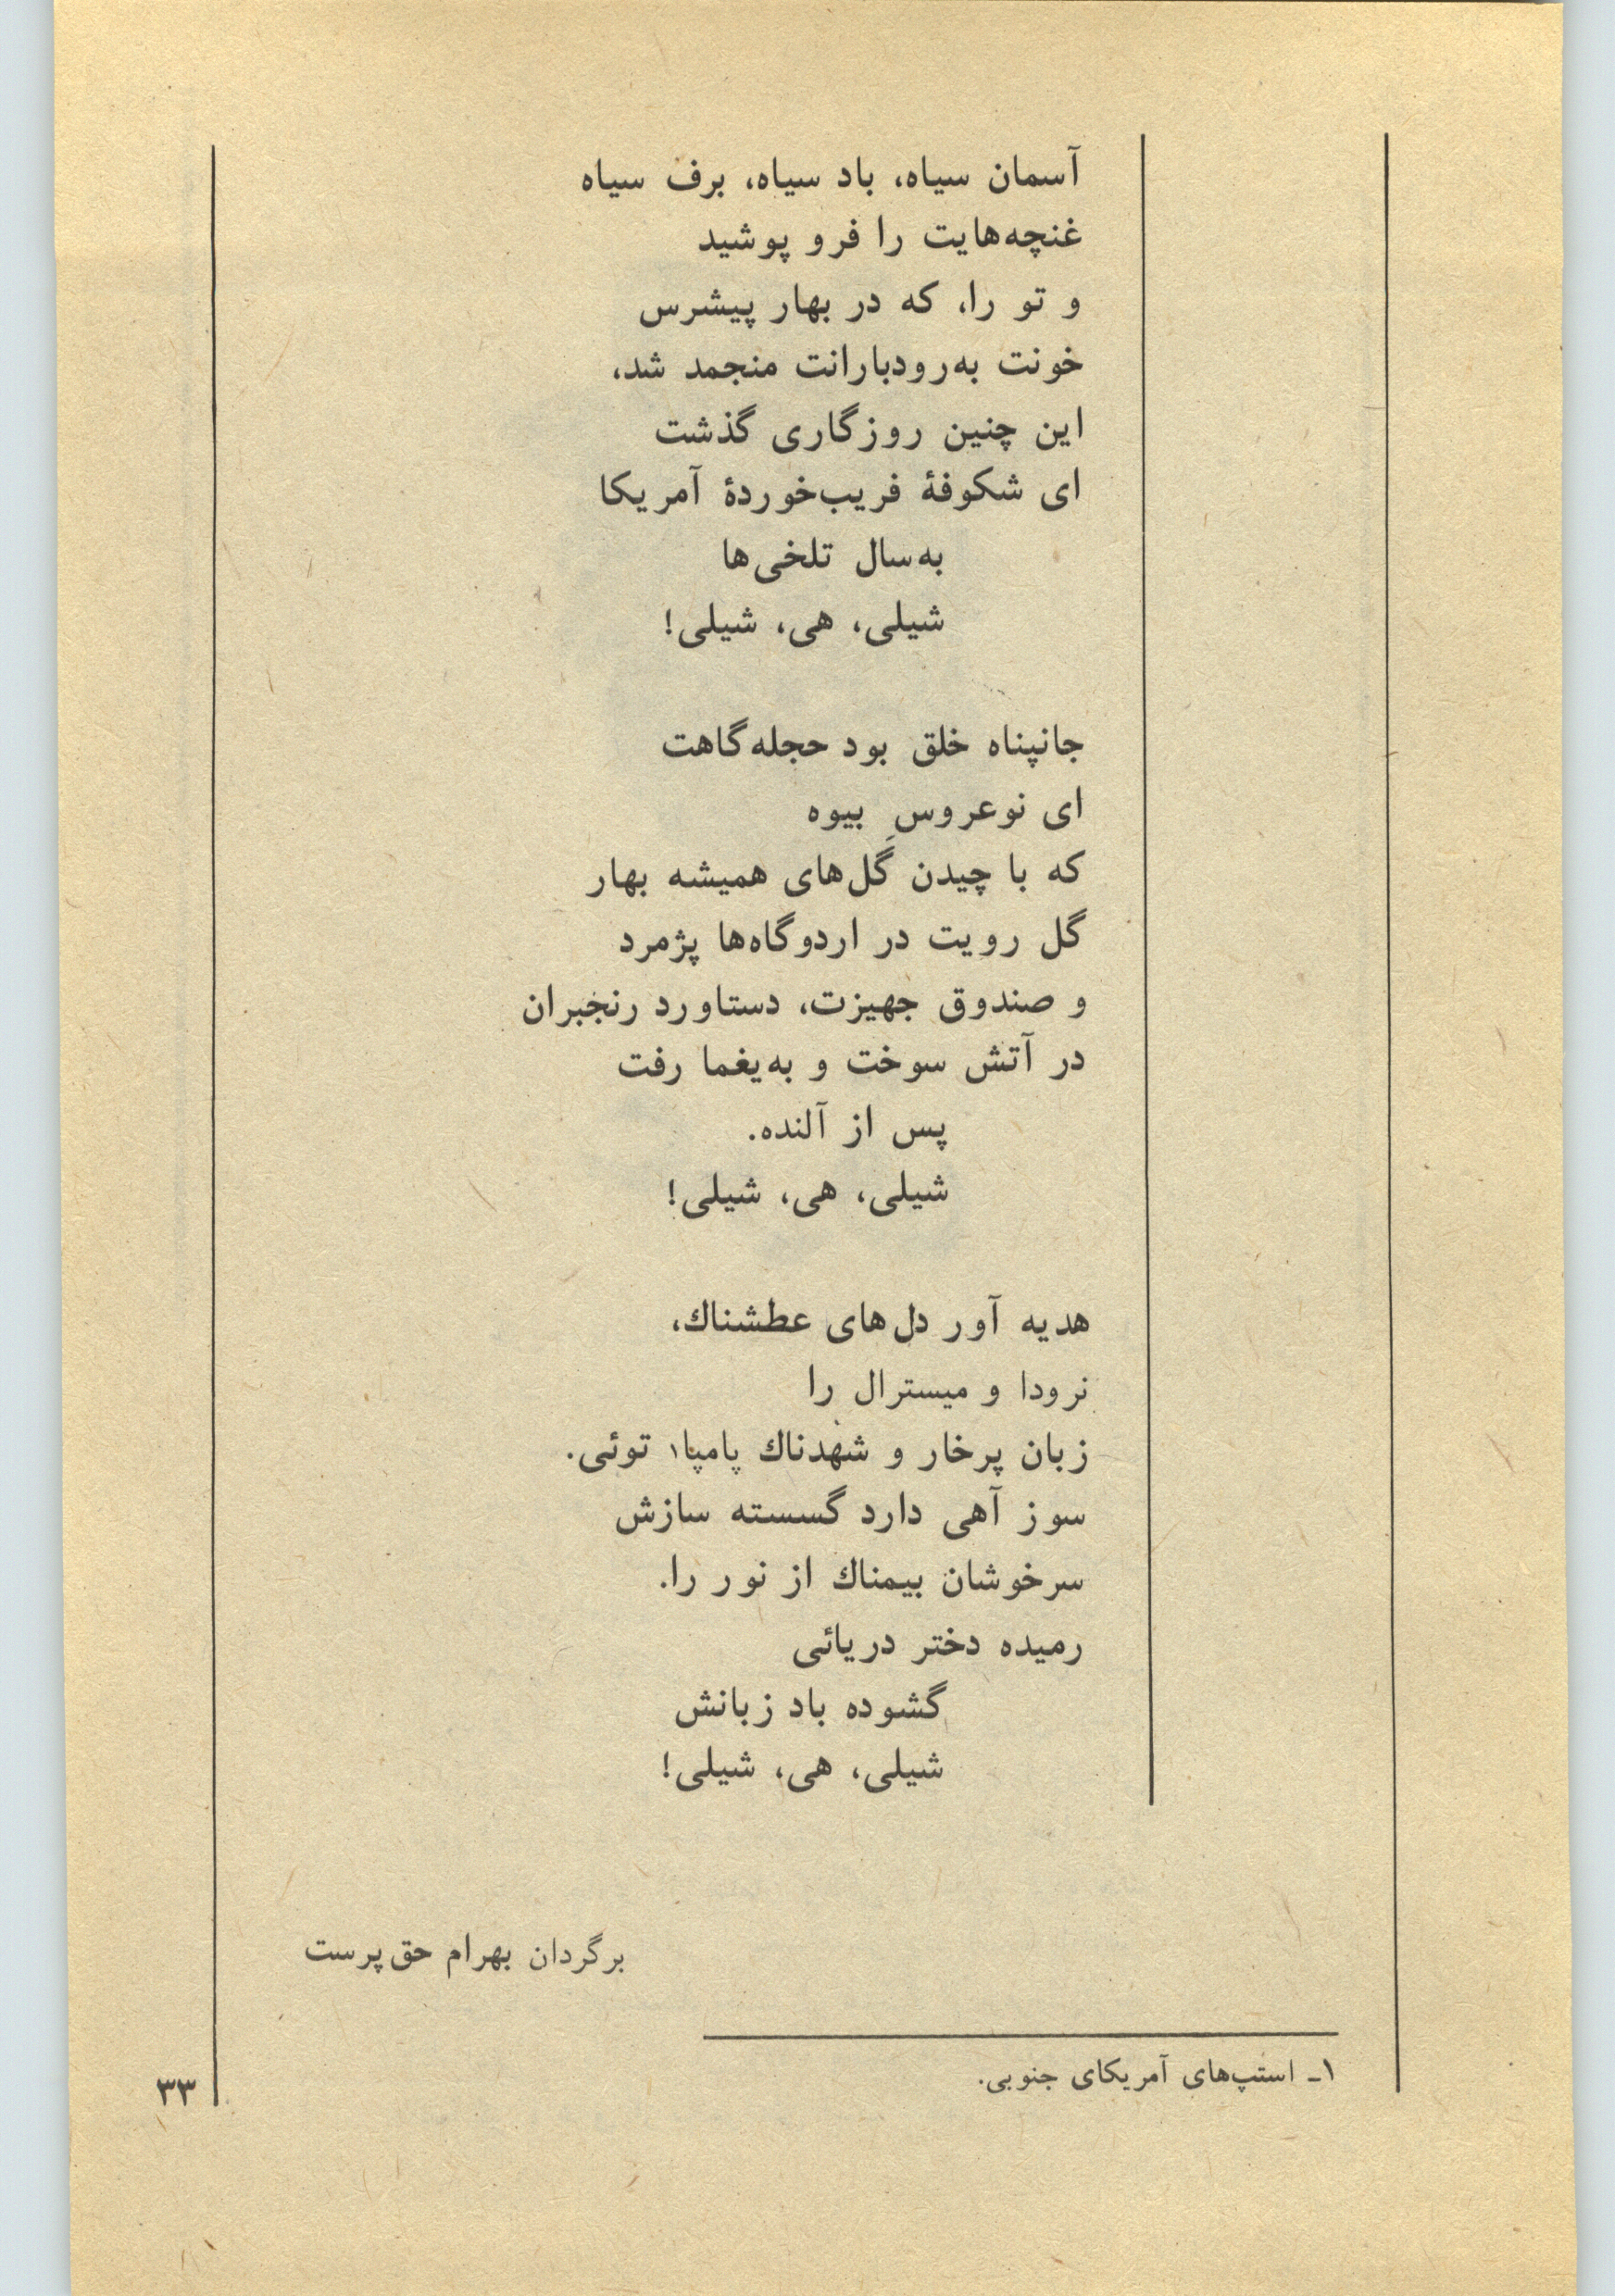 آسمان سیاه، باد سیاه، برف سیاه
غنچه‌هایت را فرو پوشید
و تو را، که در بهار پیشرس
خونت به‌رودبارانت منجمد شد،
این چنین روزگاری گذشت
ای شکوفهٔ فریب‌خوردهٔ آمریکا
به‌سال تلخی‌ها
شیلی، هی، شیلی!
جانپناه خلق بود حجله‌گاهت
ای نوعروسِ بیوه
که با چیدن گل‌های همیشه بهار
گل رویت در اردوگاه‌ها پژمرد
و صندوق جهیزت، دستاورد رنجبران
در آتش سوخت و به‌یغما رفت
پس از آلنده.
شیلی، هی، شیلی!
هدیه آور دل‌های عطشناك،
نرودا و میسترال را
زبان پرخار و شهدناك پامپا۱ توئی.
سوز آهی دارد گسسته سازش
سرخوشان بیمناك از نور را.
رمیده دختر دریائی
گشوده باد زبانش
شیلی، هی، شیلی!
برگردان بهرام حق‌پرست
۱ـ استپ‌های آمریکای جنوبی.
۳۳